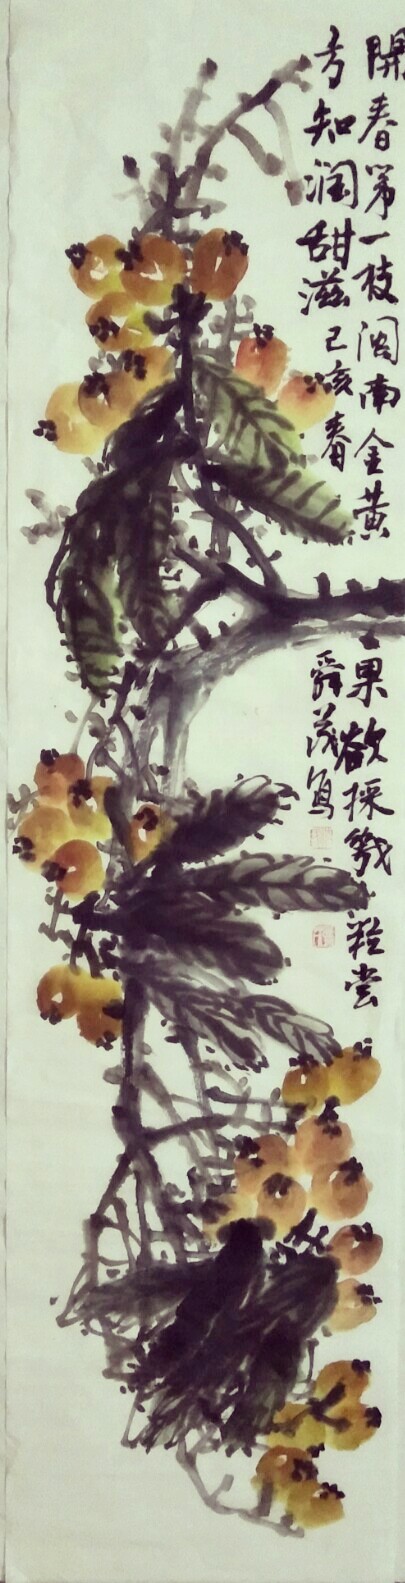 開春第一枝闽南金黄果欲採幾粒尝
方知润甜滋己亥春舜茂写